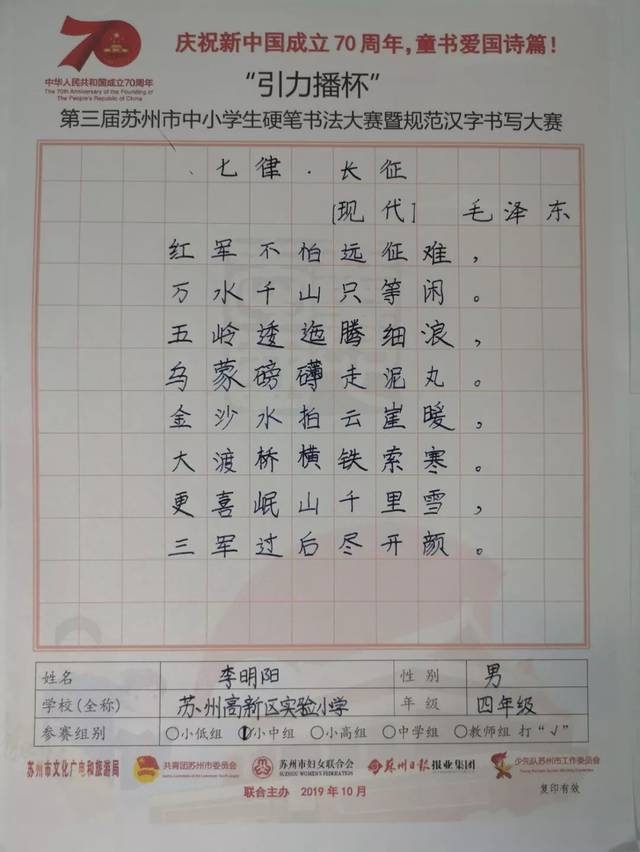 70
中华人民共和国成立70周年
The 70th Anniversary of the Founding of
The People's Republic of China
庆祝新中国成立70周年,童书爱国诗篇!
“引力播杯”
第三届苏州市中小学生硬笔书法大赛暨规范汉字书写大赛
七律·长征
[现代] 毛泽东
红军不怕远征难,
万水千山只等闲。
五岭逶迤腾细浪,
乌蒙磅礴走泥丸。
金沙水拍云崖暖,
大渡桥横铁索寒。
更喜岷山千里雪,
三军过后尽开颜。
姓名 李明阳 性别 男
学校(全称) 苏州高新区实验小学 年级 四年级
参赛组别 ○小低组 ○小中组 ○小高组 ○中学组 ○教师组 打“√”
苏州市文化广电和旅游局 共青团苏州市委员会 苏州市妇女联合会 SUZHOU WOMEN'S FEDERATION 苏州日报报业集团 少先队苏州市工作委员会
联合主办 2019年10月 复印有效